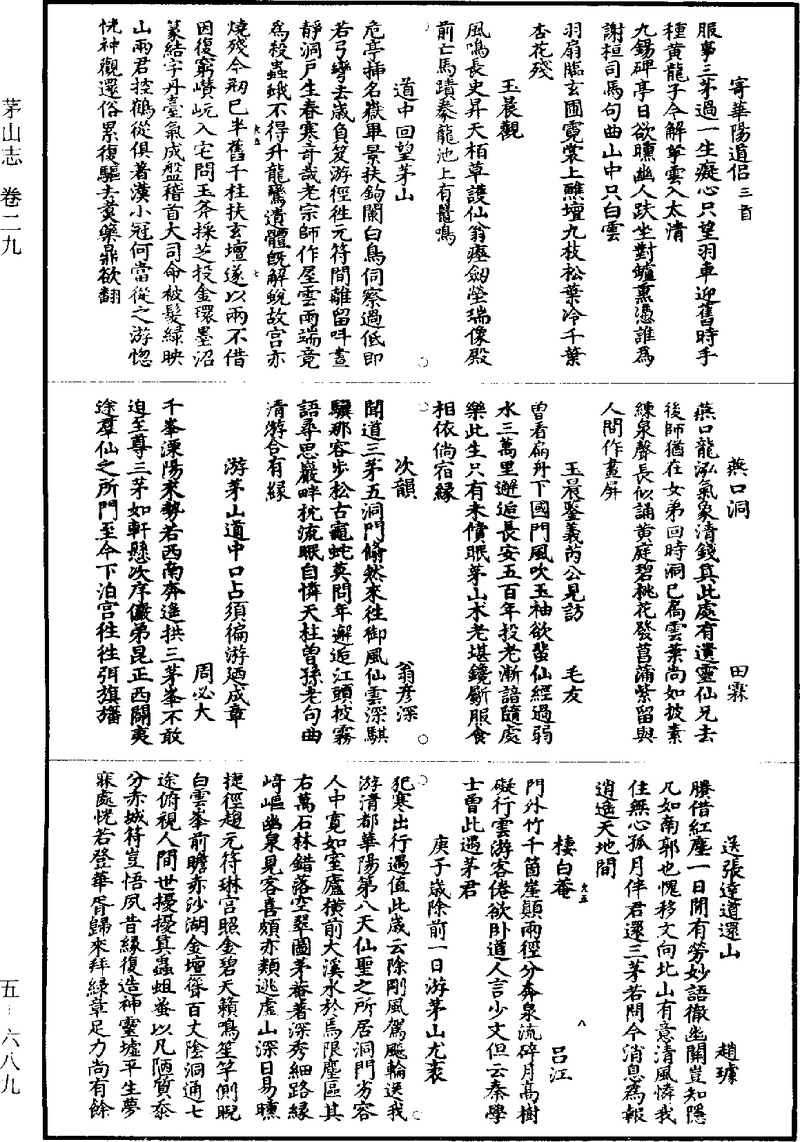 茅山志 卷二九
五—六八九
寄華陽道侶三首
服事三茅過一生癡心只望羽車迎舊時手
種黃龍子今解拏雲入太清
九錫碑亭日欲曛幽人趺坐對鑪熏憑誰為
謝桓司馬句曲山中只白雲
羽扇臨玄圃霓裳上醮壇九枝松葉冷千葉
杏花殘
玉晨觀
風鳴長史昇天栢草護仙翁瘞劒塋瑞像殿
前亡馬蹟豢龍池上有鼉鳴
道中回望茅山
危亭揷名嶽畢景扶鉤闌白鳥伺察過低即
若弓彎去歲負笈游徑徃元符間離留呌晝
靜洞戶生春寒奇哉老宗師作屋雲雨端竟
為殺蟲蛾不得升龍鸞遺體既解蛻故宮亦
燒殘今刱已半舊千柱扶玄壇遂以雨不借
因復窮嶠岏入宅問玉斧採芝投金環墨沼
篆結字丹臺氣成盤稽首大司命被髮綠映
山兩君控鶴從俱著漢小冠何當從之游惚
恍神觀還俗累復驅去羹藥鼎欲翻
燕口洞
田霖
燕口龍泓氣象清錢真此處有遺靈仙兄去
後師猶在女弟回時洞已扃雲葉尚如披素
練泉聲長似誦黃庭碧桃花發菖蒲紫留與
人間作畫屏
玉晨鑒義芮公見訪
毛友
曾看扁舟下國門風吹玉袖欲蜚仙經過弱
水三萬里邂逅長安五百年投老漸諳隨處
樂此生只有未償眠茅山朮老堪鑱斸服食
相依倘宿緣
次韻
翁彥深
聞道三茅五洞門翛然來往御風仙雲深騏
驥那容步松古竈蛇莫問年邂逅江頭披霧
語尋思巖畔枕流眠自憐天柱曾孫老句曲
清游合有緣
游茅山道中口占須徧游廼成章
周必大
千峯溧陽來勢若西南奔遙拱三茅峯不敢
迫至尊三茅如軒懸次序儼弟昆正西闢夷
途羣仙之所門至今下泊宮徃徃弭旗旛
送張達道還山
趙㻯
賸借紅塵一日閒有勞妙語徹幽關豈知隱
几如南郭也愧移文向北山有意清風憐我
住無心孤月伴君還三茅若問今消息為報
逍遙天地間
棲白菴
呂江
門外竹千箇崖顛兩徑分奔泉流碎月高樹
礙行雲游客倦欲臥道人言少文但云秦學
士曾此遇茅君
庚子歲除前一日游茅山尤袤
犯寒出行遇值此歲云除剛風駕飈輪送我
游清都華陽第八天仙聖之所居洞門劣容
人中寬如室廬橫前大溪水於焉限塵區其
右萬石林錯落空翠圖茅菴著深秀細路緣
崎嶇幽泉見客喜頗亦類逃虛山深日易曛
捷徑趨元符琳宮照金碧天籟鳴笙竽側睨
白雲峯前瞻赤沙湖金壇聳百丈陰洞通七
途俯視人間世擾擾真蟲蛆蚤以凡陋質忝
分赤城符豈悟夙昔緣復造神靈墟平生夢
寐處恍若登華胥歸來拜綠章足力尚有餘